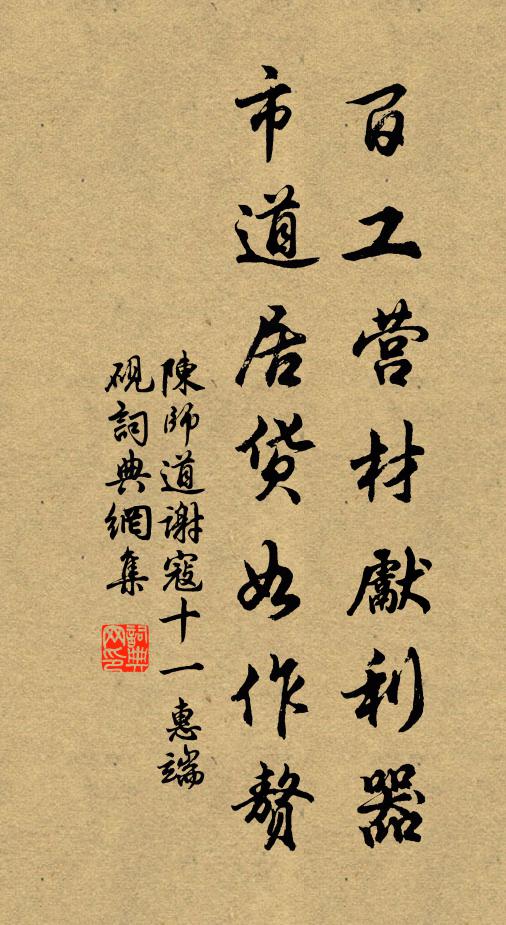 百工营材獻利器
市道居货如作贅
陳師道謝寇十一惠端
硯詞典網集
詞典网印